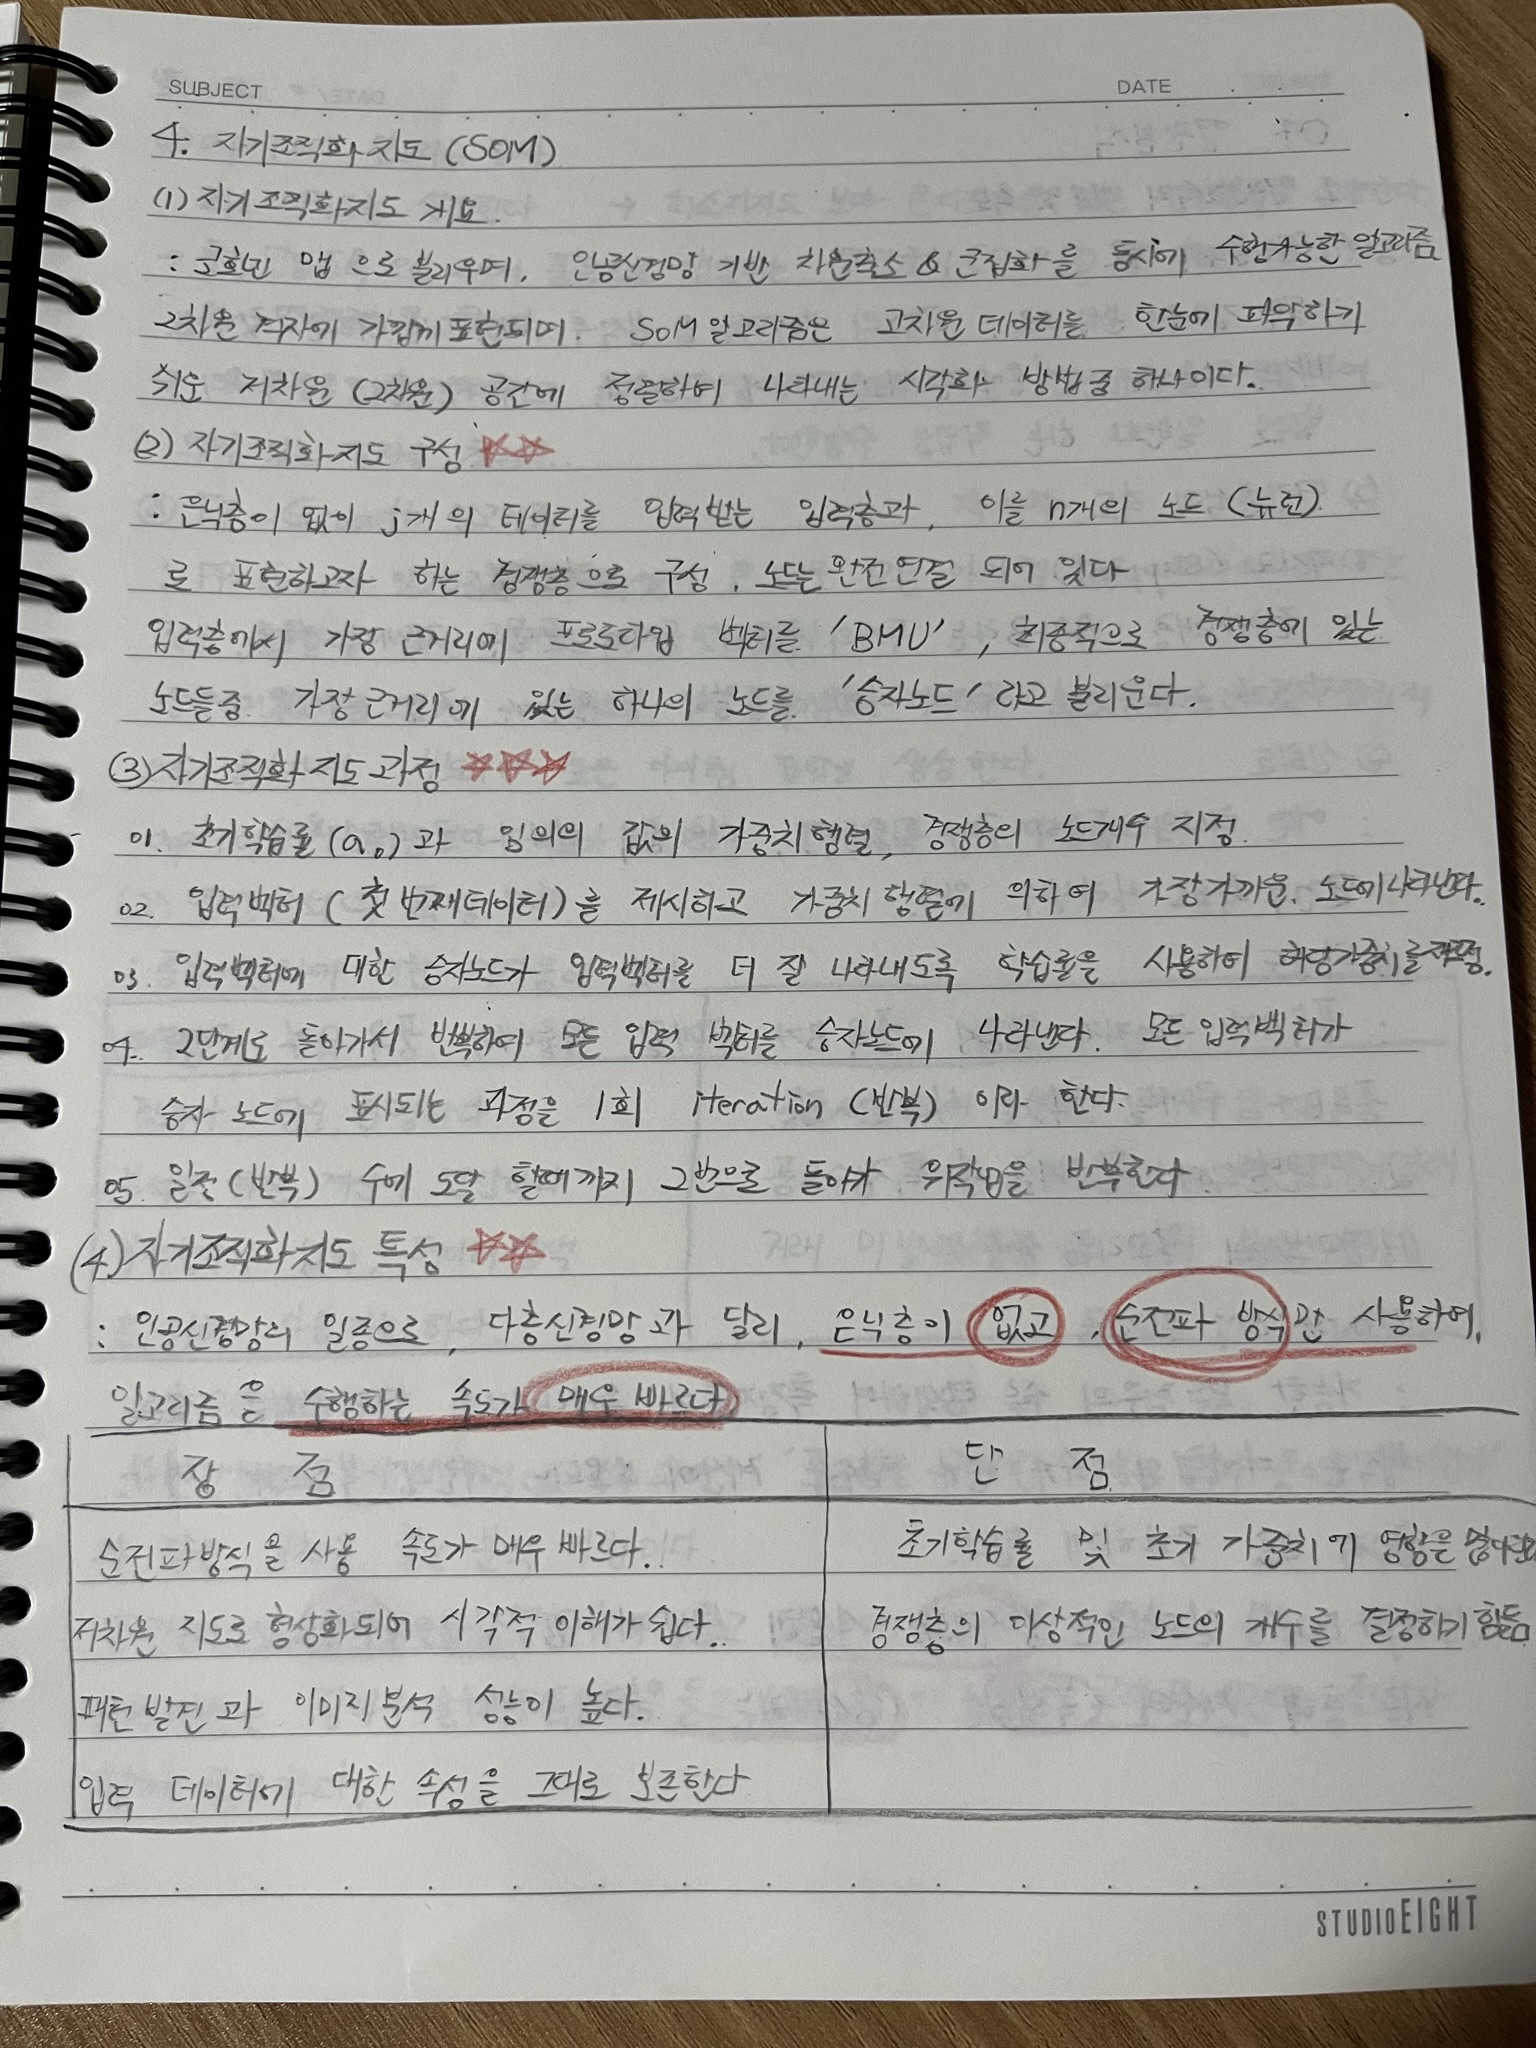 SUBJECT DATE
4. 자기조직화 지도 (SOM)
(1) 자기조직화지도 개요.
: 코호넨 맵 으로 불리우며, 인공신경망 기반 차원축소 & 군집화를 동시에 수행가능한 알고리즘
2차원 격자에 가깝게 표현되며. SOM알고리즘은 고차원 데이터를 한눈에 파악하기
쉬운 저차원 (2차원) 공간에 정렬하여 나타내는 시각화 방법중 하나이다.
(2) 자기조직화지도 구성 ☆☆
: 은닉층이 없이 j개의 데이터를 입력받는 입력층과, 이를 n개의 노드 (뉴런)
로 표현하고자 하는 경쟁층으로 구성. 노드는 완전연결 되어 있다
입력층에서 가장 근거리에 프로토타입 벡터를 'BMU', 최종적으로 경쟁층에 있는
노드들중 가장 근거리에 있는 하나의 노드를 '승자노드' 라고 불리운다.
(3) 자기조직화지도 과정 ☆☆☆
01. 초기학습률(a₀)과 임의의 값의 가중치행렬, 경쟁층의 노드개수 지정.
02. 입력벡터 (첫 번째데이터)를 제시하고 가중치행렬에 의하여 가장가까운 노드에 나타낸다.
03. 입력벡터에 대한 승자노드가 입력벡터를 더 잘 나타내도록 학습률을 사용하여 해당가중치를
04. 2단계로 돌아가서 반복하여 모든 입력 벡터를 승자노드에 나타낸다. 모든입력벡터가
승자 노드에 표시되는 과정을 1회 iteration (반복) 이라 한다.
05. 일전(반복) 수에 도달 할때까지 2번으로 돌아가 위작업을 반복한다.
(4) 자기조직화지도 특성 ☆☆
: 인공신경망의 일종으로, 다층신경망과 달리, 은닉층이 없고, 순전파 방식만 사용하여,
알고리즘을 수행하는 속도가 매우 빠르다
장 점 단 점
순전파방식을 사용 속도가 매우 빠르다. 초기학습률 및 초기 가중치에 영향을
저차원 지도로 형상화되어 시각적 이해가 쉽다. 경쟁층의 이상적인 노드의 개수를 결정하기 힘듦
패턴발견과 이미지분석 성능이 높다.
입력 데이터에 대한 속성을 그대로 보존한다
STUDIOEIGHT